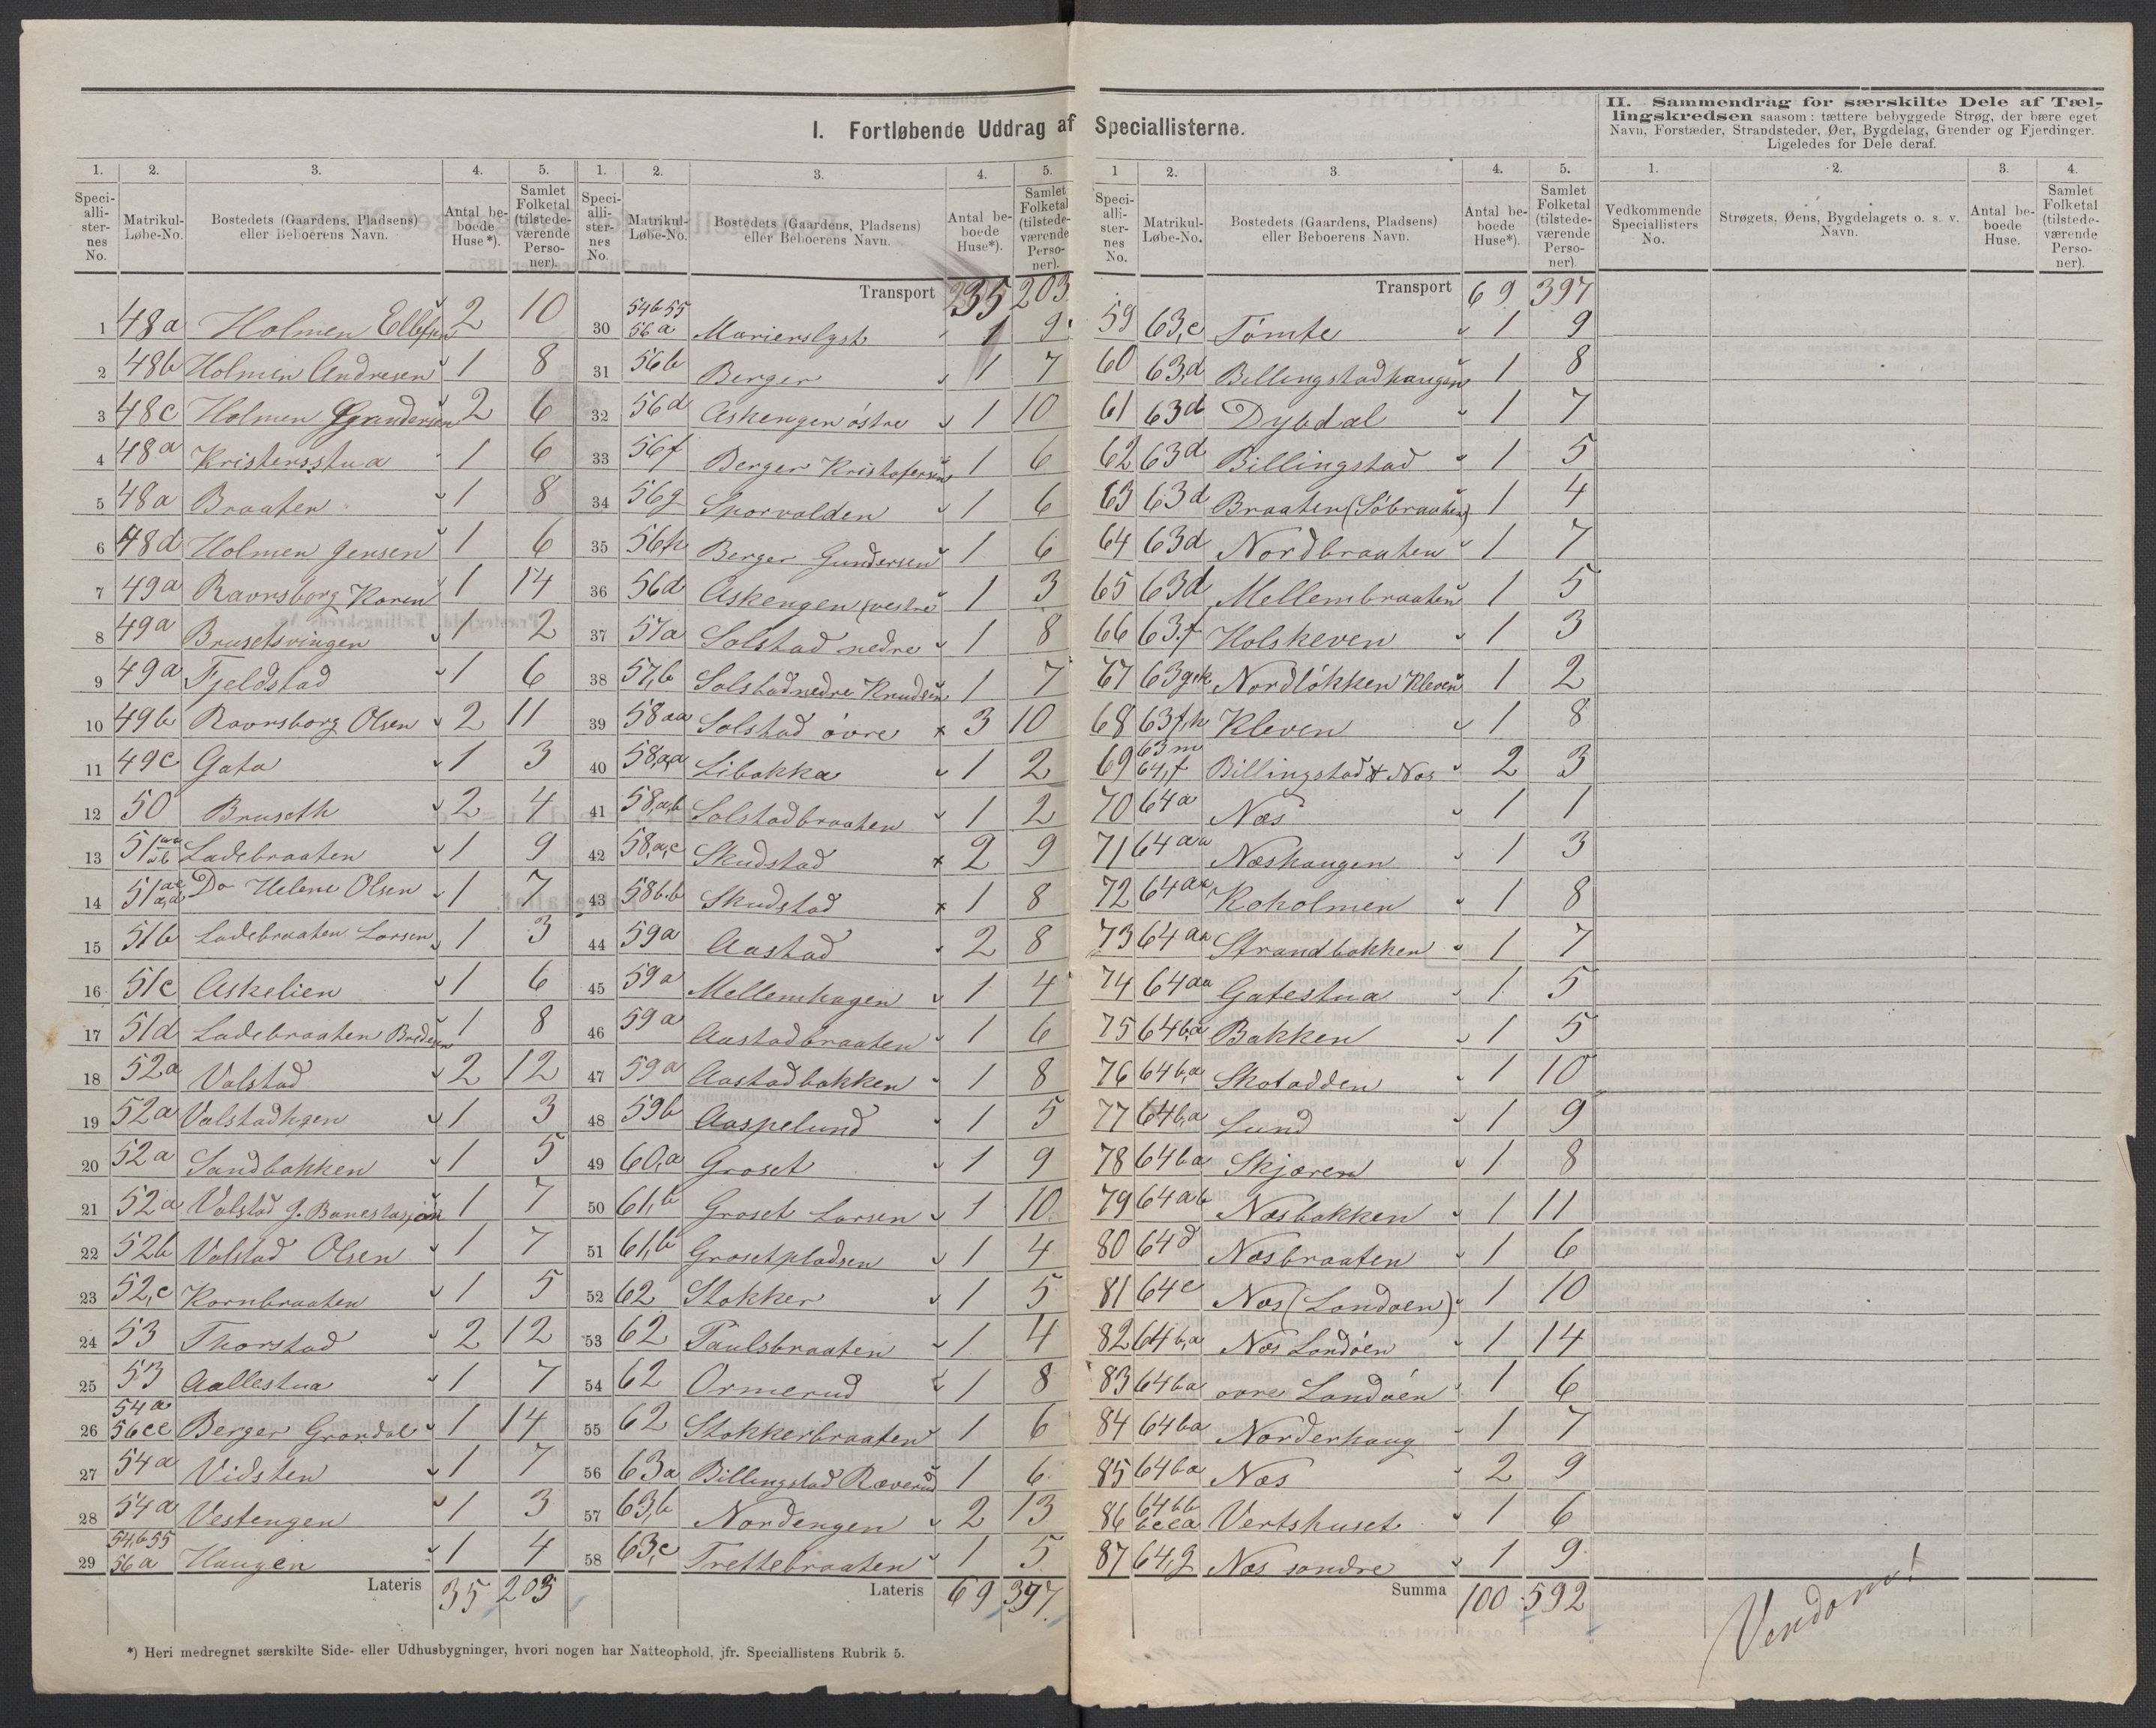 I. Fortløbende Uddrag af Speciallisterne.
1. 2. 3. 4. 5.
Specialli-sternes No. Matrikul-Løbe-No. Bostedets (Gaardens, Pladsens) eller Beboerens Navn. Antal beboede Huse*). Samlet Folketal (tilstedeværende Personer).
1 48a Holmen Ellefsen 2 10
2 48b Holmen Andresen 1 8
3 48c Holmen Gundersen 2 6
4 48a Kristensstua 1 6
5 48a Braaten 1 8
6 48d Holmen Jensen 1 6
7 49a Ravnsborg Karen 1 14
8 49a Brusetsvingen 1 2
9 49a Fjeldstad 1 6
10 49b Ravnsborg Olsen 2 11
11 49c Gata 1 3
12 50 Bruseth 2 4
13 51aa ab Ladebraaten 1 9
14 51ac ad Do Helene Olsen 1 7
15 51b Ladebraaten Larsen 1 3
16 51c Askelien 1 6
17 51d Ladebraaten Bredesen 1 8
18 52a Valstad 2 12
19 52a Valstadhgen 1 3
20 52a Sandbakken 1 5
21 52a Valstad J. Banestasjon 1 7
22 52b Valstad Olsen 1 7
23 52,c Kornbraaten 1 5
24 53 Thorstad 2 12
25 53 Aallestua 1 7
26 54a 56ee Berger Grøndal 1 14
27 54a Vidsten 1 7
28 54a Vestengen 1 3
29 54,b 55 56a Haugen 1 4
Lateris 35 203
*) Heri medregnet særskilte Side- eller Udhusbygninger, hvori nogen har Natteophold, jfr. Speciallistens Rubrik 5.
1. 2. 3. 4. 5.
Specialli-sternes No. Matrikul-Løbe-No. Bostedets (Gaardens, Pladsens) eller Beboerens Navn. Antal beboede Huse*). Samlet Folketal (tilstedeværende Personer).
Transport 35 203
30 54b 55 56a Marienslyst 1 9
31 56b Berger 1 7
32 56d Askengen østre 1 10
33 56f Berger Kristofersen 1 6
34 56g Skorvolden 1 6
35 56h Berger Gundersen 1 6
36 56d Askengen (vestre 1 3
37 57a Solstad nedre 1 8
38 57,b Solstad nedre Knudsen 1 7
39 58aa Solstad øvre 3 10
40 58,aa Libakka 1 2
41 58,a,b Solstadbraaten 1 2
42 58,a,c Skudstad 2 9
43 58b,b Skudstad 1 8
44 59a Aastad 2 8
45 59a Mellemhagen 1 4
46 59a Aastadbraaten 1 6
47 59a Aastadbakken 1 8
48 59b Aaspelund 1 5
49 60,a Groset 1 9
50 61,b Groset Larsen 1 10
51 61,b Grosetpladsen 1 4
52 62 Stokker 1 5
53 62 Paulsbraaten 1 4
54 62 Ormerud 1 8
55 62 Stokkerbraaten 1 6
56 63a Billingstad Ræverud 1 6
57 63,b Nordengen 2 13
58 63,c Trettebraaten 1 5
Lateris 69 397
1 2. 3. 4. 5.
Specialli-sternes No. Matrikul-Løbe-No. Bostedets (Gaardens, Pladsens) eller Beboerens Navn. Antal beboede Huse*). Samlet Folketal (tilstedeværende Personer).
Transport 69 397
59 63,c Tømte 1 9
60 63,d Billingstadhaugen 1 8
61 63d Dybdal 1 7
62 63d Billingstad 1 5
63 63d Braaten (Søbraaten) 1 4
64 63d Nordbraaten 1 7
65 63d Mellembraaten 1 5
66 63.f Holskeven 1 3
67 63g,k Nordløkken Kleven 1 2
68 63f,h Kleven 1 8
69 63m 64,f Billingstad & Næs 2 3
70 64a Næs 1 1
71 64aa Næshaugen 1 3
72 64aa Koholmen 1 8
73 64aa Strandbakken 1 7
74 64aa Gatestua 1 5
75 64b,a Bakken 1 5
76 64b,a Skotadden 1 10
77 64b,a Lund 1 9
78 64ba Skjæren 1 8
79 64ab Næsbakken 1 11
80 64d Næsbraaten 1 6
81 64e Næs (Landøen) 1 10
82 64b,a Næs Landøen 1 14
83 64ba øvre Landøen 1 6
84 64ba Nørderhaug 1 7
85 64ba Næs 2 9
86 64bb Vertshuset 1 6
87 64,g Næs søndre 1 9
Summa 100 592
II. Sammendrag for særskilte Dele af Tællingskredsen saasom: tættere bebyggede Strøg, der bære eget Navn, Forstæder, Strandsteder, Øer, Bygdelag, Grender og Fjerdinger. Ligeledes for Dele deraf.
1. 2. 3. 4.
Vedkommende Speciallisters No. Strøgets, Øens, Bygdelagets o. s. v. Navn. Antal beboede Huse. Samlet Folketal (tilstedeværende Personer).